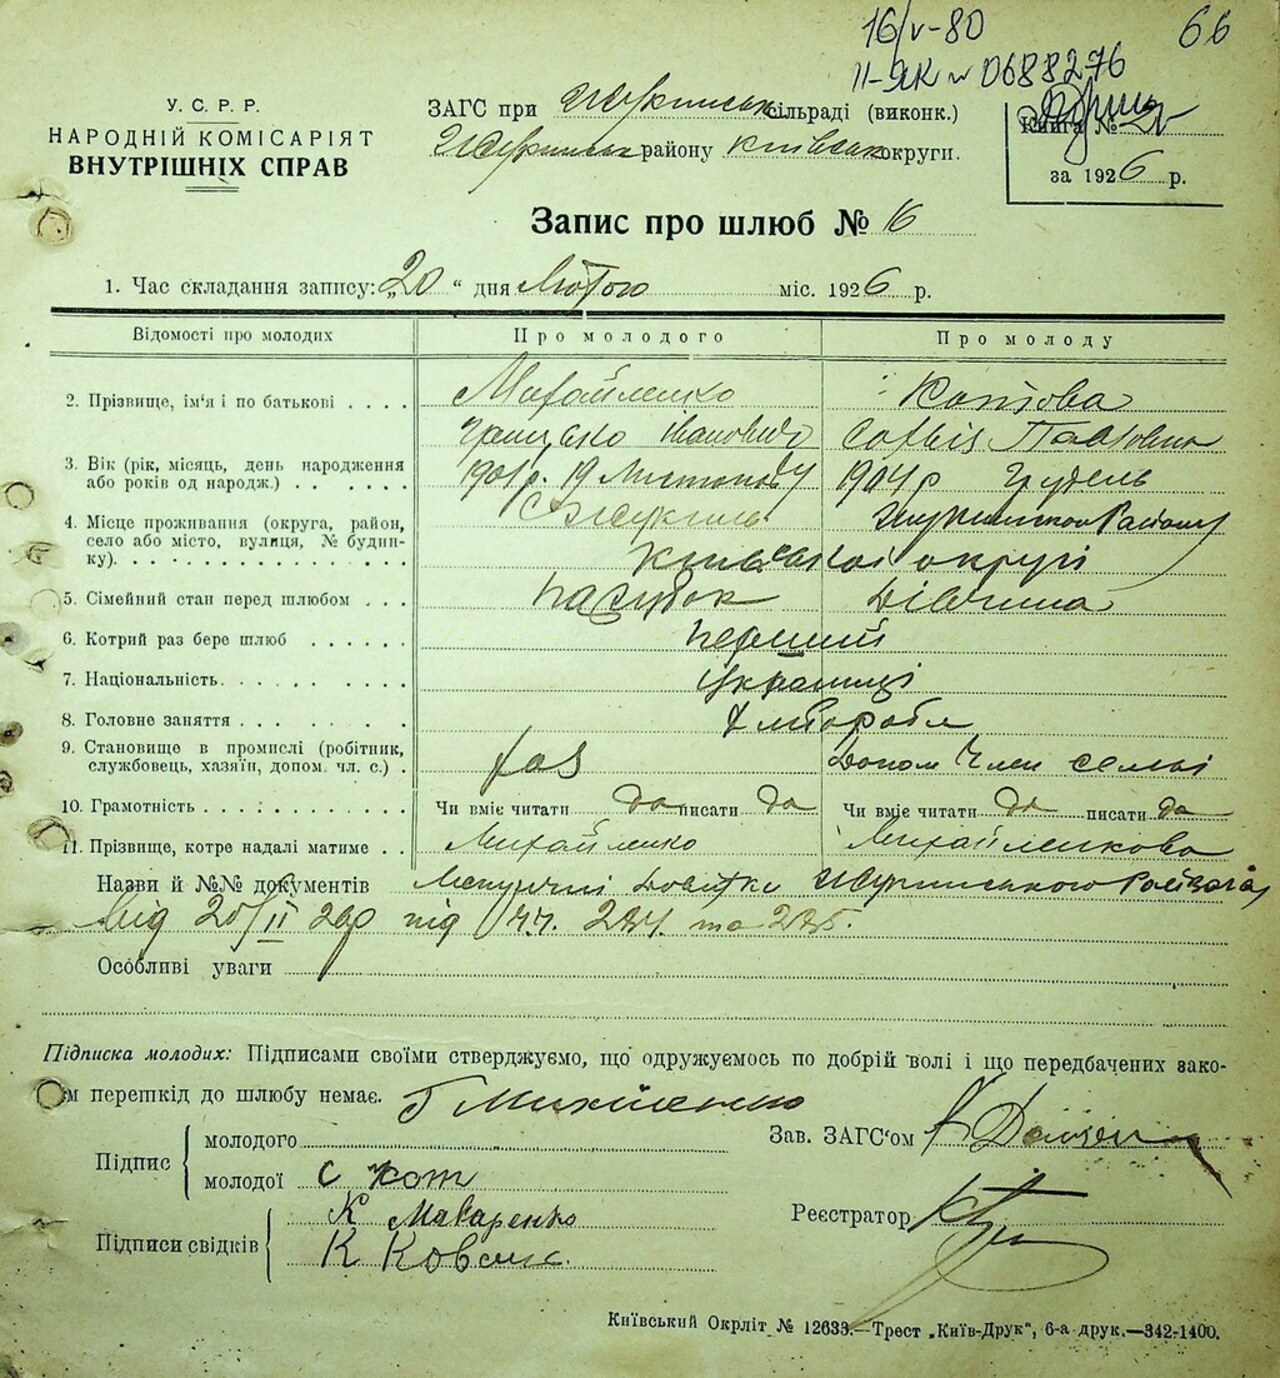 16/V-80
66
II-ЯК № 0688276
У. С. Р. Р.
НАРОДНІЙ КОМІСАРІЯТ
ВНУТРІШНІХ СПРАВ
ЗАГС при сільраді (виконк.)
району Київськ округи.
Книга №
за 1926 р.
Запис про шлюб № 16
1. Час складання запису: „20“ дня Лютого міс. 1926 р.
Відомості про молодих
Про молодого
Про молоду
2. Прізвище, ім'я і по батькові . . . .
Михайленко
Котова
Грицько Іванович
Софія Павловна
3. Вік (рік, місяць, день народження або років од народж.) . . . . . .
1901 р. 19 Листопаду
1904 р Грудень
4. Місце проживання (округа, район, село або місто, вулиця, № будинку). . . . . . . . . . . . . . . .
С Жукин
Жукинського Району
Київської округи
5. Сімейний стан перед шлюбом . . .
парубок
дівчина
6. Котрий раз бере шлюб . . . . . .
перший
7. Національність. . . . . . . . . .
Українці
8. Головне заняття . . . . . . . . .
Хлібороби
9. Становище в промислі (робітник, службовець, хазяїн, допом. чл. с.) .
Допом Член семьі
10. Грамотність . . . . . . . . . . .
Чи вміє читати да писати да
Чи вміє читати да писати да
11. Прізвище, котре надалі матиме . .
Михайленко
Михайленкова
Назви й №№ документів
довідки Жукинського
від 20/II
під 234. та 235.
Особливі уваги
Підписка молодих: Підписами своїми стверджуємо, що одружуємось по добрій волі і що передбачених зако-
ом перешкід до шлюбу немає.
Г Михайленко
Підпис
молодого
молодої С Кот
Зав. ЗАГС'ом
Підписи свідків
К Макаренко
К Коваль
Реєстратор
Київський Окрліт № 12633.—Трест „Київ-Друк“, 6-а друк.—342-1400.